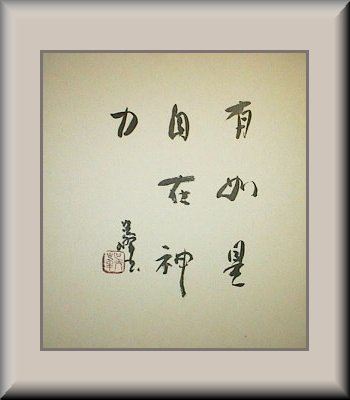 有如是
自在神
力